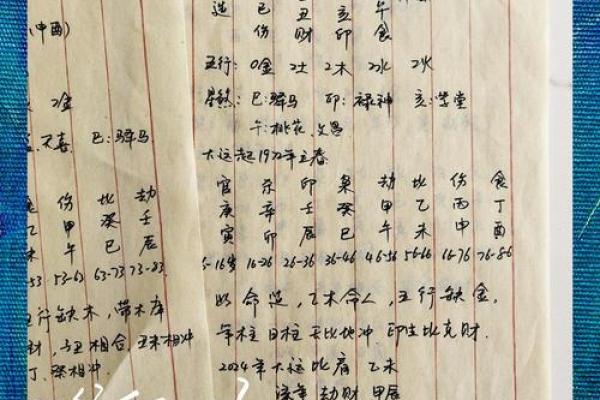 (申酉)
2金
天喜 巳:驿马
伤 比 劫
乙 甲 癸 壬
未 午 巳 辰
53 53-63 63-73 73-83
五行缺木,带木库
财,子丑相合,丑未相冲
丁癸相冲.
造 巳 丑 亥 午
伤 财 印 食
五行: 0金 2土 2木 2水 2火
星煞: 巳:驿马 卯:禄神 亥:学堂
午:桃花、文昌
大运起1972年立春
官 杀 印 枭 劫 比 伤 食
庚 辛 壬 癸 甲 乙 丙 丁
寅 卯 辰 巳 午 未 申 酉
6-16岁 16-26 26-36 36-46 46-56 56-66 66-76 76-86
此命造,乙木命人,五行缺金,
年柱日柱天比地冲 印生比克财.
2024年大运比肩 乙未
流年 劫财 甲辰